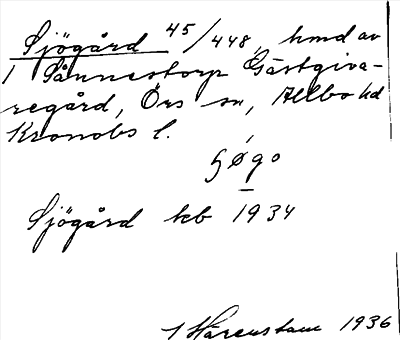 Sjögård 45/448, hmd av
1 Sånnestorp Gästgiva-
regård, Örs sn, Allbo hd
Kronobs l.
Sjögård kb 1934
1936